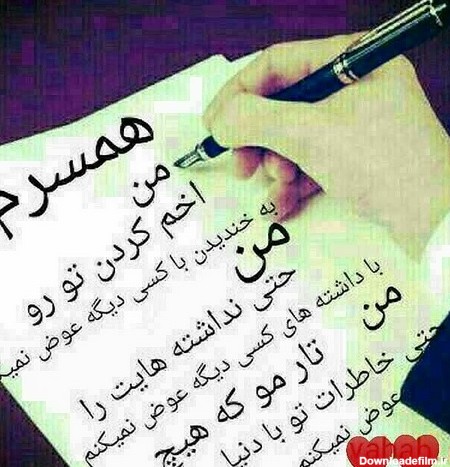 همسرم
من
اخم کردن تو رو
به خندیدن با کسی دیگه عوض نمیک
من
حتی نداشته هایت را
با داشته های کسی دیگه عوض نمیکنم
من
تار مو که هیچ
حتی خاطرات تو با دنیا
عوض نمیکنم
vahab
Downloadefilm.ir